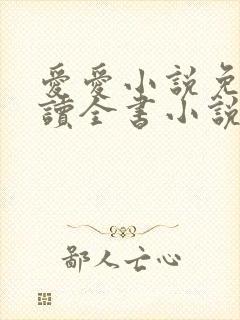 愛愛小說免
讀全書小說
鄙人亡心